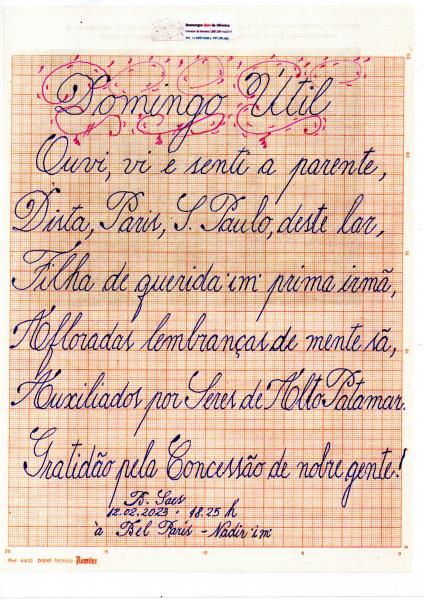 Domingo Útil
Ouvi, vi e senti a parente,
Dista, Paris, S. Paulo, deste lar,
Filha de querida "im" prima irmã,
Afloradas lembranças de mente sã,
Auxiliados por Seres de Alto Patamar.
Gratidão pela Concessão de nobre gente!
B. Saes
12.02.2023 · 18.25 h
à Bel Paris - Nadir "im"
20 15 10 5 0
Ref. 4410 papel tecnico Remitec